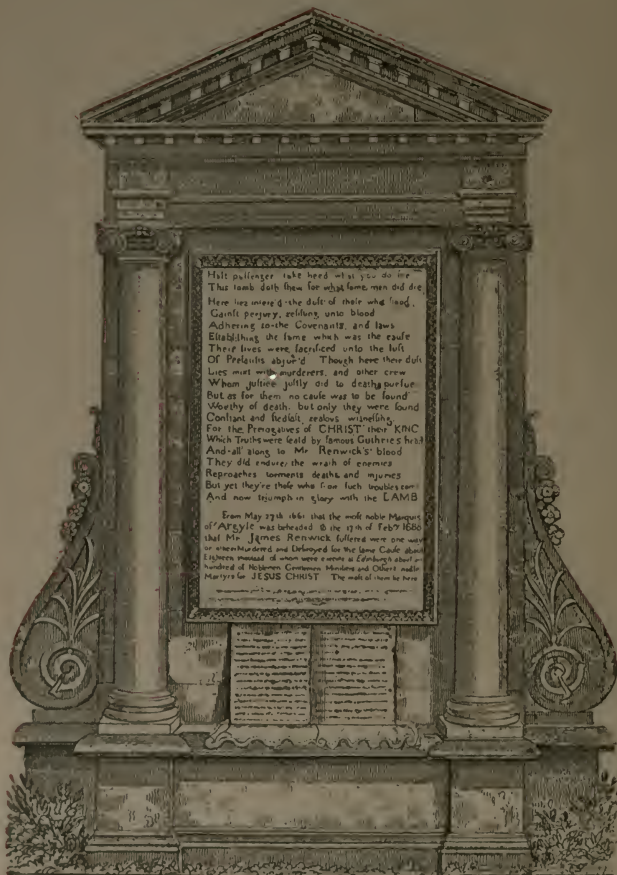 Halt paſſenger take heed what you do ſee
This tomb doth ſhew for what ſome men did die
Here lies interr'd the duſt of thoſe who ſtood
Gainſt perjury, reſiſting unto blood
Adhering to the Covenants, and laws
Eſtabliſhing the ſame which was the cauſe
There lives were ſacrificed unto the luſt
Of Prelatiſts abjur'd Though here their duſt
Lies mixt with murderers, and other crew
Whom juſtice juſtly did to death purſue
But as for them no cauſe was to be found
Worthy of death, but only they were found
Conſtant and ſtedfaſt, zealous witneſſing
For the Prerogatives of CHRIST their KING
Which Truths were ſeald by famous Guthries head
And all along to Mr Renwick's blood
They did endure the wrath of enemies
Reproaches torments deaths and injuries
But yet they're thoſe who from ſuch troubles came
And now triumph in glory with the LAMB
From May 27th 1661 that the moſt noble Marquis
of Argyle was beheaded to the 17th of Febʳ 1688
that Mr James Renwick ſuffered were one way
or other Murdered and Deſtroyed for the ſame Cauſe about
Eighteen thouſand of whom were execute at Edinburgh about an
hundred of Noblemen Gentlemen Miniſters and Others noble
Martyrs for JESUS CHRIST The moſt of them lie here